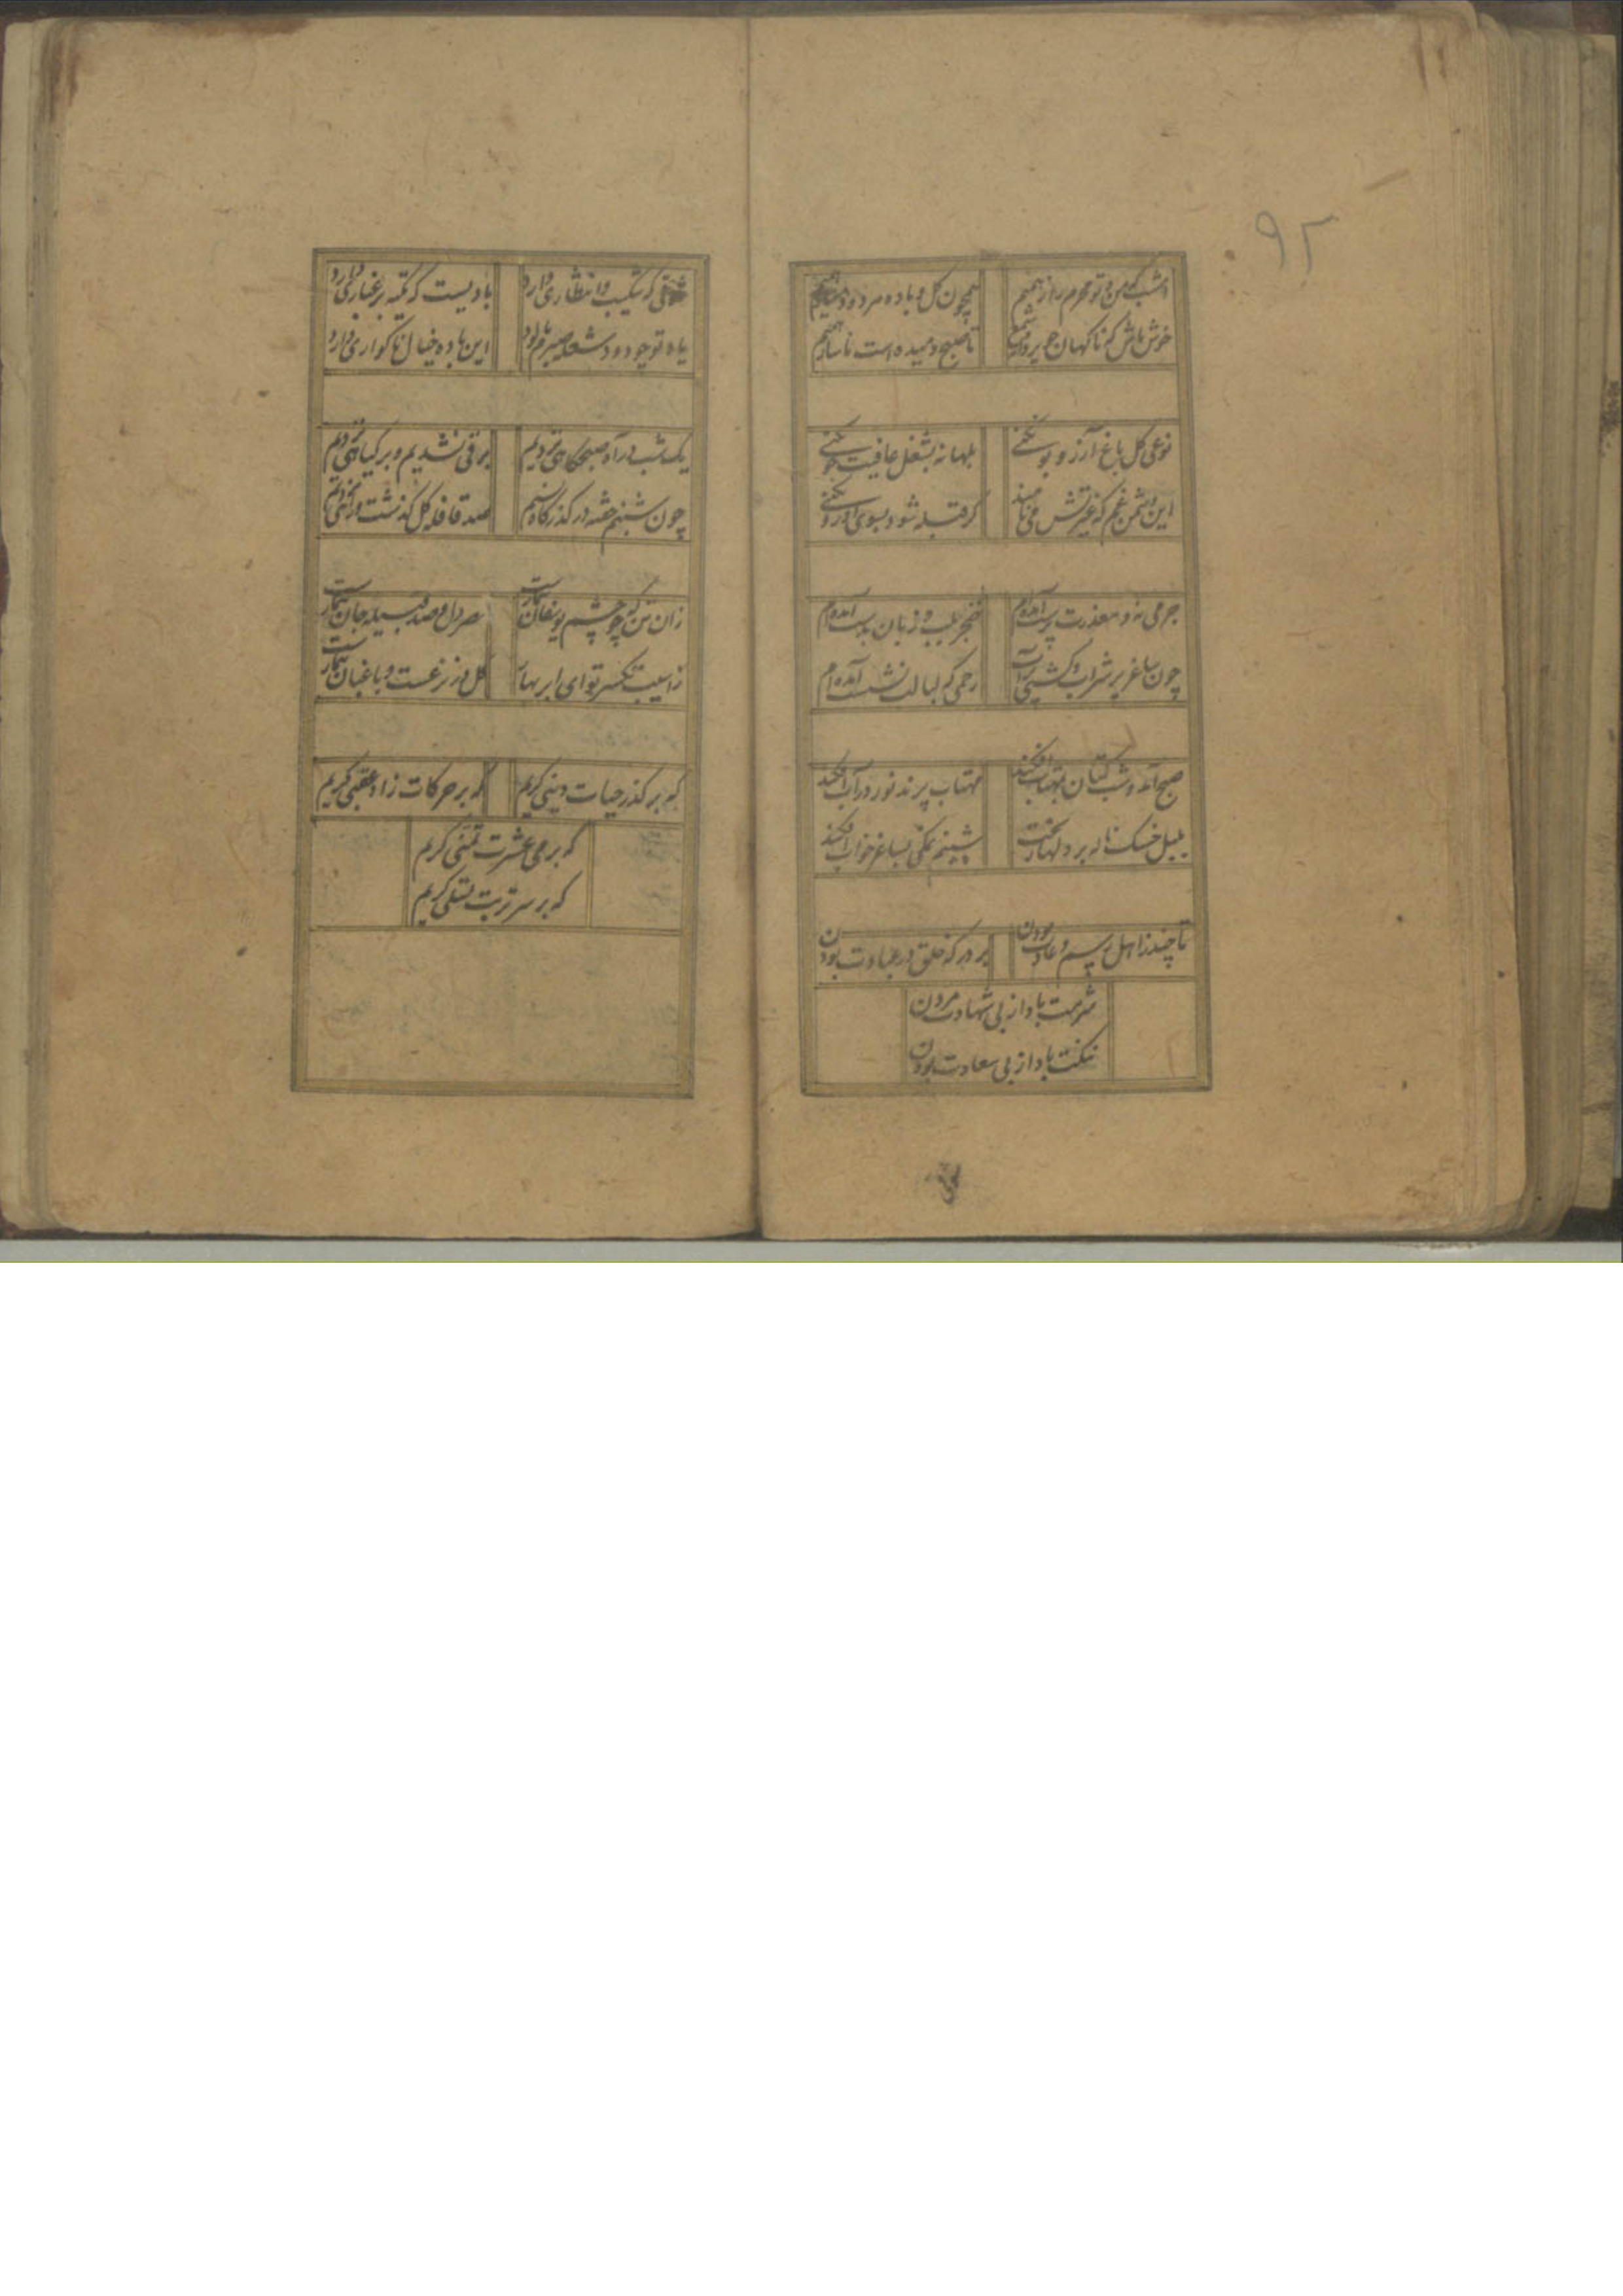 ۹۲
امشب که من و تو محرم راز همیم
همچون گل و باده مرد و دمساز همیم
خوش باش که ناگهان چو پروانه و شمع
تا صبح دمیده است ناساز همیم
نوعی گل باغ آرزو بو نکنی
بلهانه بشغل عافیت خو نکنی
این دشمن غم که غیرتش می‌نامند
گر قبله شود بسوی او رو نکنی
جرمی نه و معذرت پرست آمده‌ام
خنجر بلب و زبان بدست آمده‌ام
چون ساغر پر شراب و کشتی پر آب
رحمی که لبالب نشست آمده‌ام
صبح آمد و شب کتان بمهتاب افکند
مهتاب پرند نور در آب افکند
بلبل خسک ناله بر دلها ریخت
شبنم نمکی بساغر خواب افکند
تا چند ز اهل رسم و عادت بودن
بر درگه خلق در عبادت بودن
شرمت بادا ز بی شهادت مردن
ننگت بادا ز بی سعادت بودن
که شکیب و انتظاری دارد
بادیست که تکیه بر غباری دارد
یاد تو چو دود شعله صبرم داد
این باده خیال ناگواری دارد
یک شب در آه صبحگاهی نزدیم
برقی نشدیم و بر گیاهی نزدیم
چون شبنم خفته در گذرگاه نسیم
صد قافله گل گذشت و راهی نزدیم
زان تن که چو چشم یوسفان بیمارست
صد دل و صد قبیله جان بیمارست
ز آسیب تکسر تو ای ابر بهار
گل در نزعست و باغبان بیمارست
که بر گذر حیات دینی گریم
که بر حرکات زاد عقبی گریم
که بر می عشرت تمنی گریم
که بر سر تربت تسلی گریم